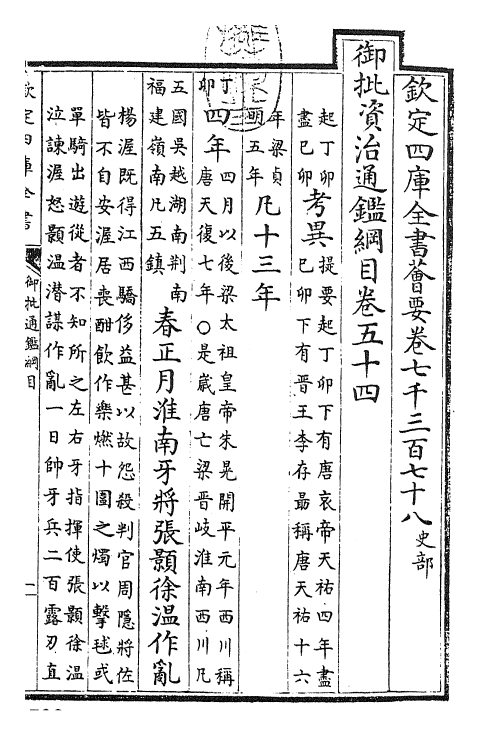 欽定四庫全書薈要卷七千三百七十八史部
御批資治通鑑綱目卷五十四
起丁卯
盡己卯
考異
提要起丁卯下有唐哀帝天祐四年盡
己卯下有晉王李存勗稱唐天祐十六
年梁貞
明五年
凡十三年
丁
卯
四年
四月以後梁太祖皇帝朱晃開平元年西川稱
唐天復七年○是歲唐亡梁晉岐淮南西川凡
五國吳越湖南荆南
福建嶺南凡五鎮
春正月淮南牙將張顥徐温作亂
楊渥既得江西驕侈益甚以故怨殺判官周隱將佐
皆不自安渥居喪酣飲作樂燃十圍之燭以擊毬或
單騎出遊從者不知所之左右牙指揮使張顥徐温
泣諫渥怒顥温潜謀作亂一日帥牙兵二百露刃直
欽定四庫全書
御批通鑑綱目